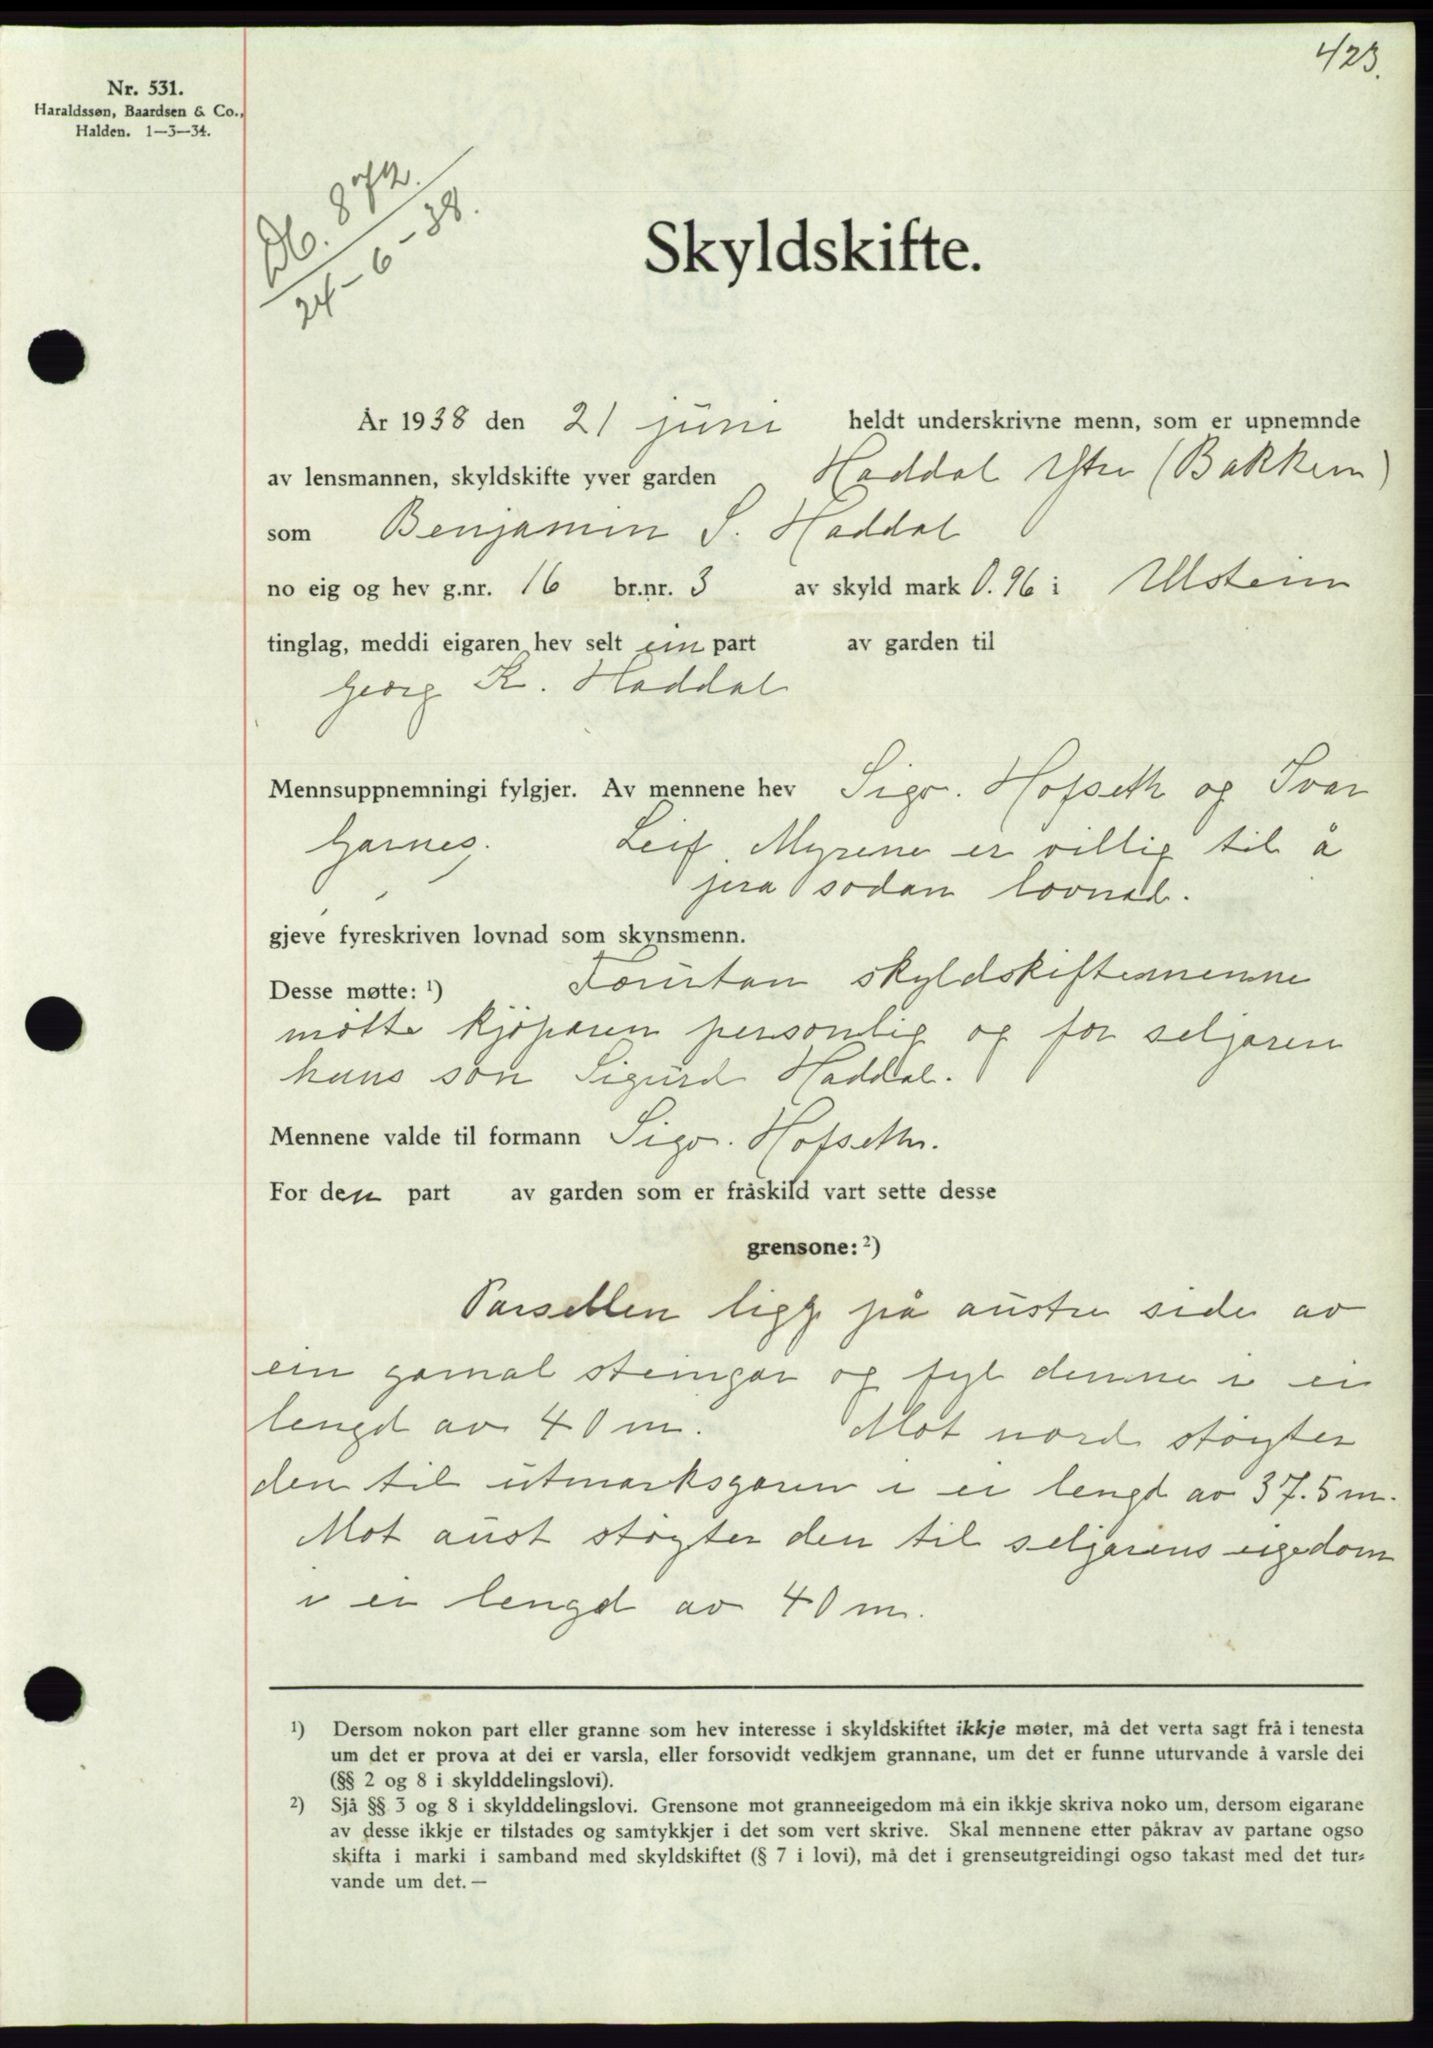 423.
Nr. 531.
Haraldssøn, Baardsen & Co.,
Halden. 1—3—34.
Db. 872.
24-6-38.
Skyldskifte.
År 1938 den 21 juni heldt underskrivne menn, som er upnemnde
av lensmannen, skyldskifte yver garden Haddal Ytre (Bakken)
som Benjamin S. Haddal
no eig og hev g.nr. 16 br.nr. 3 av skyld mark 0.96 i Ulstein
tinglag, meddi eigaren hev selt ein part av garden til
Georg K. Haddal
Mennsuppnemningi fylgjer. Av mennene hev Sigv. Hofseth og Ivar
Garnes. Leif Myrene er villig til å
jera sodan lovnad.
gjeve fyreskriven lovnad som skynsmenn.
Desse møtte: ¹) Forutan skyldskiftemennene
møtte kjøparen personlig og for seljaren
hans søn Sigurd Haddal.
Mennene valde til formann Sigv. Hofseth.
For den part av garden som er fråskild vart sette desse
grensone: ²)
Parsellen ligg på austre side av
ein gamal steingar og fyl denne i ei
lengd av 40 m. Mot nord støyter
den til utmarksgaren i ei lengd av 37.5 m.
Mot aust støyter den til seljarens eigedom
i ei lengd av 40 m.
¹) Dersom nokon part eller granne som hev interesse i skyldskiftet ikkje møter, må det verta sagt frå i tenesta
um det er prova at dei er varsla, eller forsovidt vedkjem grannane, um det er funne uturvande å varsle dei
(§§ 2 og 8 i skylddelingslovi).
²) Sjå §§ 3 og 8 i skylddelingslovi. Grensone mot granneeigedom må ein ikkje skriva noko um, dersom eigarane
av desse ikkje er tilstades og samtykkjer i det som vert skrive. Skal mennene etter påkrav av partane ogso
skifta i marki i samband med skyldskiftet (§ 7 i lovi), må det i grenseutgreidingi ogso takast med det tur-
vande um det. —